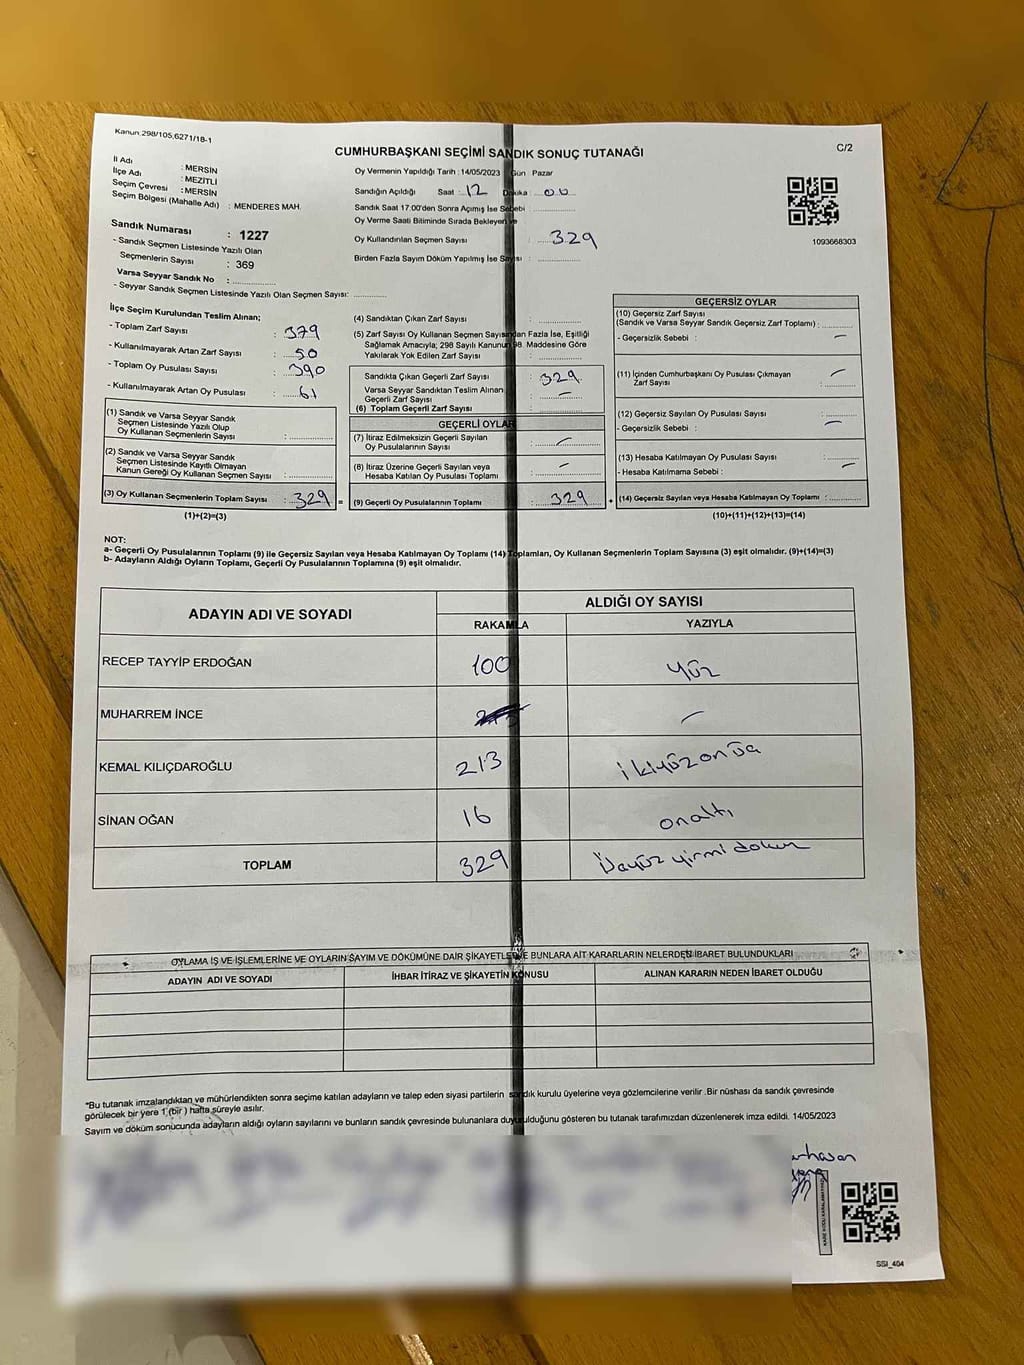 Kanun:298/105,6271/18-1
CUMHURBAŞKANI SEÇİMİ SANDIK SONUÇ TUTANAĞI
C/2
İl Adı : MERSİN
İlçe Adı : MEZİTLİ
Seçim Çevresi : MERSİN
Seçim Bölgesi (Mahalle Adı) : MENDERES MAH.
Oy Vermenin Yapıldığı Tarih : 14/05/2023 Gün : Pazar
Sandığın Açıldığı Saat : 12 Dakika : 00
Sandık Saat 17:00'den Sonra Açmış İse Sebebi :
Oy Verme Saati Bitiminde Sırada Bekleyen ve
Oy Kullandırılan Seçmen Sayısı : 329
Birden Fazla Sayım Döküm Yapılmış İse Sayısı :
1093668303
Sandık Numarası : 1227
- Sandık Seçmen Listesinde Yazılı Olan
Seçmenlerin Sayısı : 369
Varsa Seyyar Sandık No :
- Seyyar Sandık Seçmen Listesinde Yazılı Olan Seçmen Sayısı:
İlçe Seçim Kurulundan Teslim Alınan;
- Toplam Zarf Sayısı : 379
- Kullanılmayarak Artan Zarf Sayısı : 50
- Toplam Oy Pusulası Sayısı : 390
- Kullanılmayarak Artan Oy Pusulası : 61
(1) Sandık ve Varsa Seyyar Sandık
Seçmen Listesinde Yazılı Olup
Oy Kullanan Seçmenlerin Sayısı :
(2) Sandık ve Varsa Seyyar Sandık
Seçmen Listesinde Kayıtlı Olmayan
Kanun Gereği Oy Kullanan Seçmen Sayısı :
(3) Oy Kullanan Seçmenlerin Toplam Sayısı : 329 =
(1)+(2)=(3)
(4) Sandıktan Çıkan Zarf Sayısı :
(5) Zarf Sayısı Oy Kullanan Seçmen Sayısından Fazla İse, Eşitliği
Sağlamak Amacıyla; 298 Sayılı Kanunun 98. Maddesine Göre
Yakılarak Yok Edilen Zarf Sayısı :
Sandıkta Çıkan Geçerli Zarf Sayısı : 329
Varsa Seyyar Sandıktan Teslim Alınan
Geçerli Zarf Sayısı : —
(6) Toplam Geçerli Zarf Sayısı :
GEÇERLİ OYLAR
(7) İtiraz Edilmeksizin Geçerli Sayılan
Oy Pusulalarının Sayısı : —
(8) İtiraz Üzerine Geçerli Sayılan veya
Hesaba Katılan Oy Pusulası Toplamı : —
(9) Geçerli Oy Pusulalarının Toplamı : 329 +
GEÇERSİZ OYLAR
(10) Geçersiz Zarf Sayısı
(Sandık ve Varsa Seyyar Sandık Geçersiz Zarf Toplamı) :
- Geçersizlik Sebebi : —
(11) İçinden Cumhurbaşkanı Oy Pusulası Çıkmayan
Zarf Sayısı : —
(12) Geçersiz Sayılan Oy Pusulası Sayısı :
- Geçersizlik Sebebi : —
(13) Hesaba Katılmayan Oy Pusulası Sayısı :
- Hesaba Katılmama Sebebi : —
(14) Geçersiz Sayılan veya Hesaba Katılmayan Oy Toplamı :
(10)+(11)+(12)+(13)=(14)
NOT:
a- Geçerli Oy Pusulalarının Toplamı (9) ile Geçersiz Sayılan veya Hesaba Katılmayan Oy Toplamı (14) Toplamları, Oy Kullanan Seçmenlerin Toplam Sayısına (3) eşit olmalıdır. (9)+(14)=(3)
b- Adayların Aldığı Oyların Toplamı, Geçerli Oy Pusulalarının Toplamına (9) eşit olmalıdır.
ADAYIN ADI VE SOYADI ALDIĞI OY SAYISI
RAKAMLA YAZIYLA
RECEP TAYYİP ERDOĞAN 100 Yüz
MUHARREM İNCE —
KEMAL KILIÇDAROĞLU 213 ikiyüzonüç
SİNAN OĞAN 16 onaltı
TOPLAM 329 Üçyüz yirmi dokuz
OYLAMA İŞ VE İŞLEMLERİNE VE OYLARIN SAYIM VE DÖKÜMÜNE DAİR ŞİKAYETLER VE BUNLARA AİT KARARLARIN NELERDEN İBARET BULUNDUKLARI
ADAYIN ADI VE SOYADI İHBAR İTİRAZ VE ŞİKAYETİN KONUSU ALINAN KARARIN NEDEN İBARET OLDUĞU
*Bu tutanak imzalandıktan ve mühürlendikten sonra seçime katılan adayların ve talep eden siyasi partilerin sandık kurulu üyelerine veya gözlemcilerine verilir .Bir nüshası da sandık çevresinde
görülecek bir yere 1 (bir ) hafta süreyle asılır.
Sayım ve döküm sonucunda adayların aldığı oyların sayılarını ve bunların sandık çevresinde bulunanlara duyurulduğunu gösteren bu tutanak tarafımızdan düzenlenerek imza edildi. 14/05/2023
SSI_404